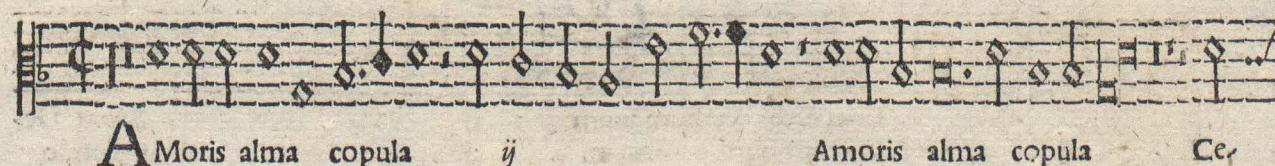 AMoris alma copula ij Amoris alma copula Ce,